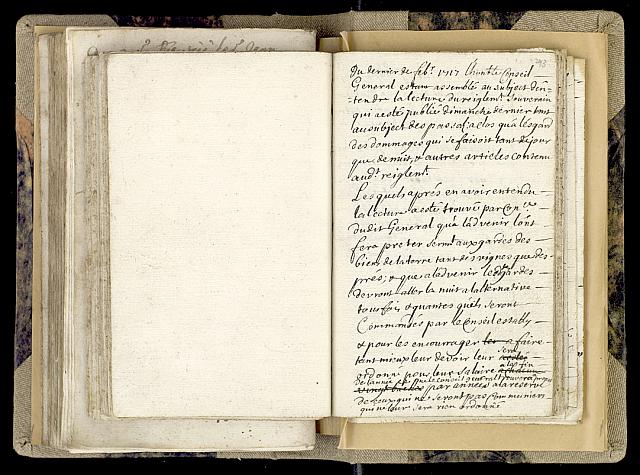 243
Du dernier de feb.r 1717 Conseil
General estant assemblé au subject d'en-
-tendre la lecture du reiglem.t souverain
qui a esté publié dimanche dernier tant
au subject des pas a clos qu'a l'esgard
des dommages qui se faisoit tant de jour
que de nuit, & autres articles contenu
aud.t reiglem.t
Lesquels aprés en avoir entendu
la lecture a esté trouvé par Con.
dudit General qu'a l'advenir l'ont
fera preter serm.t aux gardes des
biens de la terre tant des vignes que des
prés; & que a l'advenir lesd. gardes
devront aller la nuit a l'alternative
tous fois & quantes quils seront
Commandés par le Conseil estably
& pour les encourager a faire
tant mieux leur devoir leur sera
ordonné pour leur salaire a la fin
de l'année ce que le conseil general trouvera
par année a la reserve
de ceux qui ne seront pas Communiers
qui ne leur sera rien ordonné